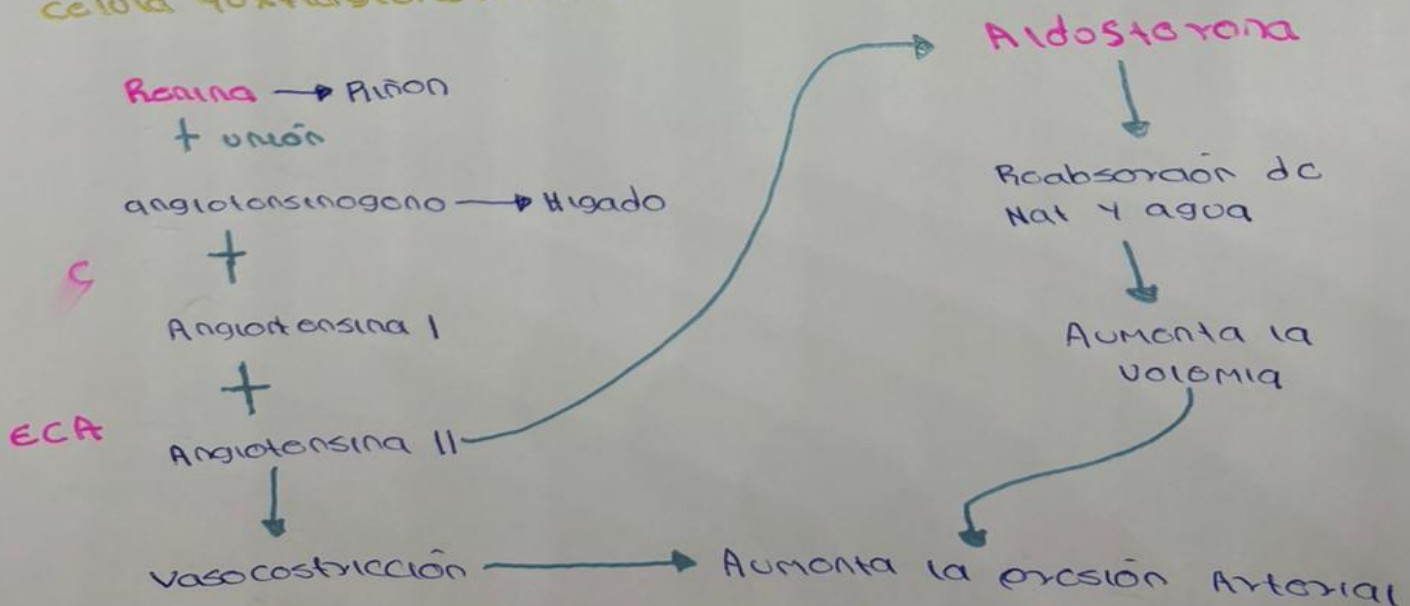 Celula yuxtaglome
Renina → Riñon
+ unión
angiotensinogeno → Higado
+
Angiortensina I
+
ECA
Angiotensina II
Vasocostricción → Aumenta la presión Arterial
Aldosterona
Reabsorción de
Na+ y agua
Aumenta la
volemia